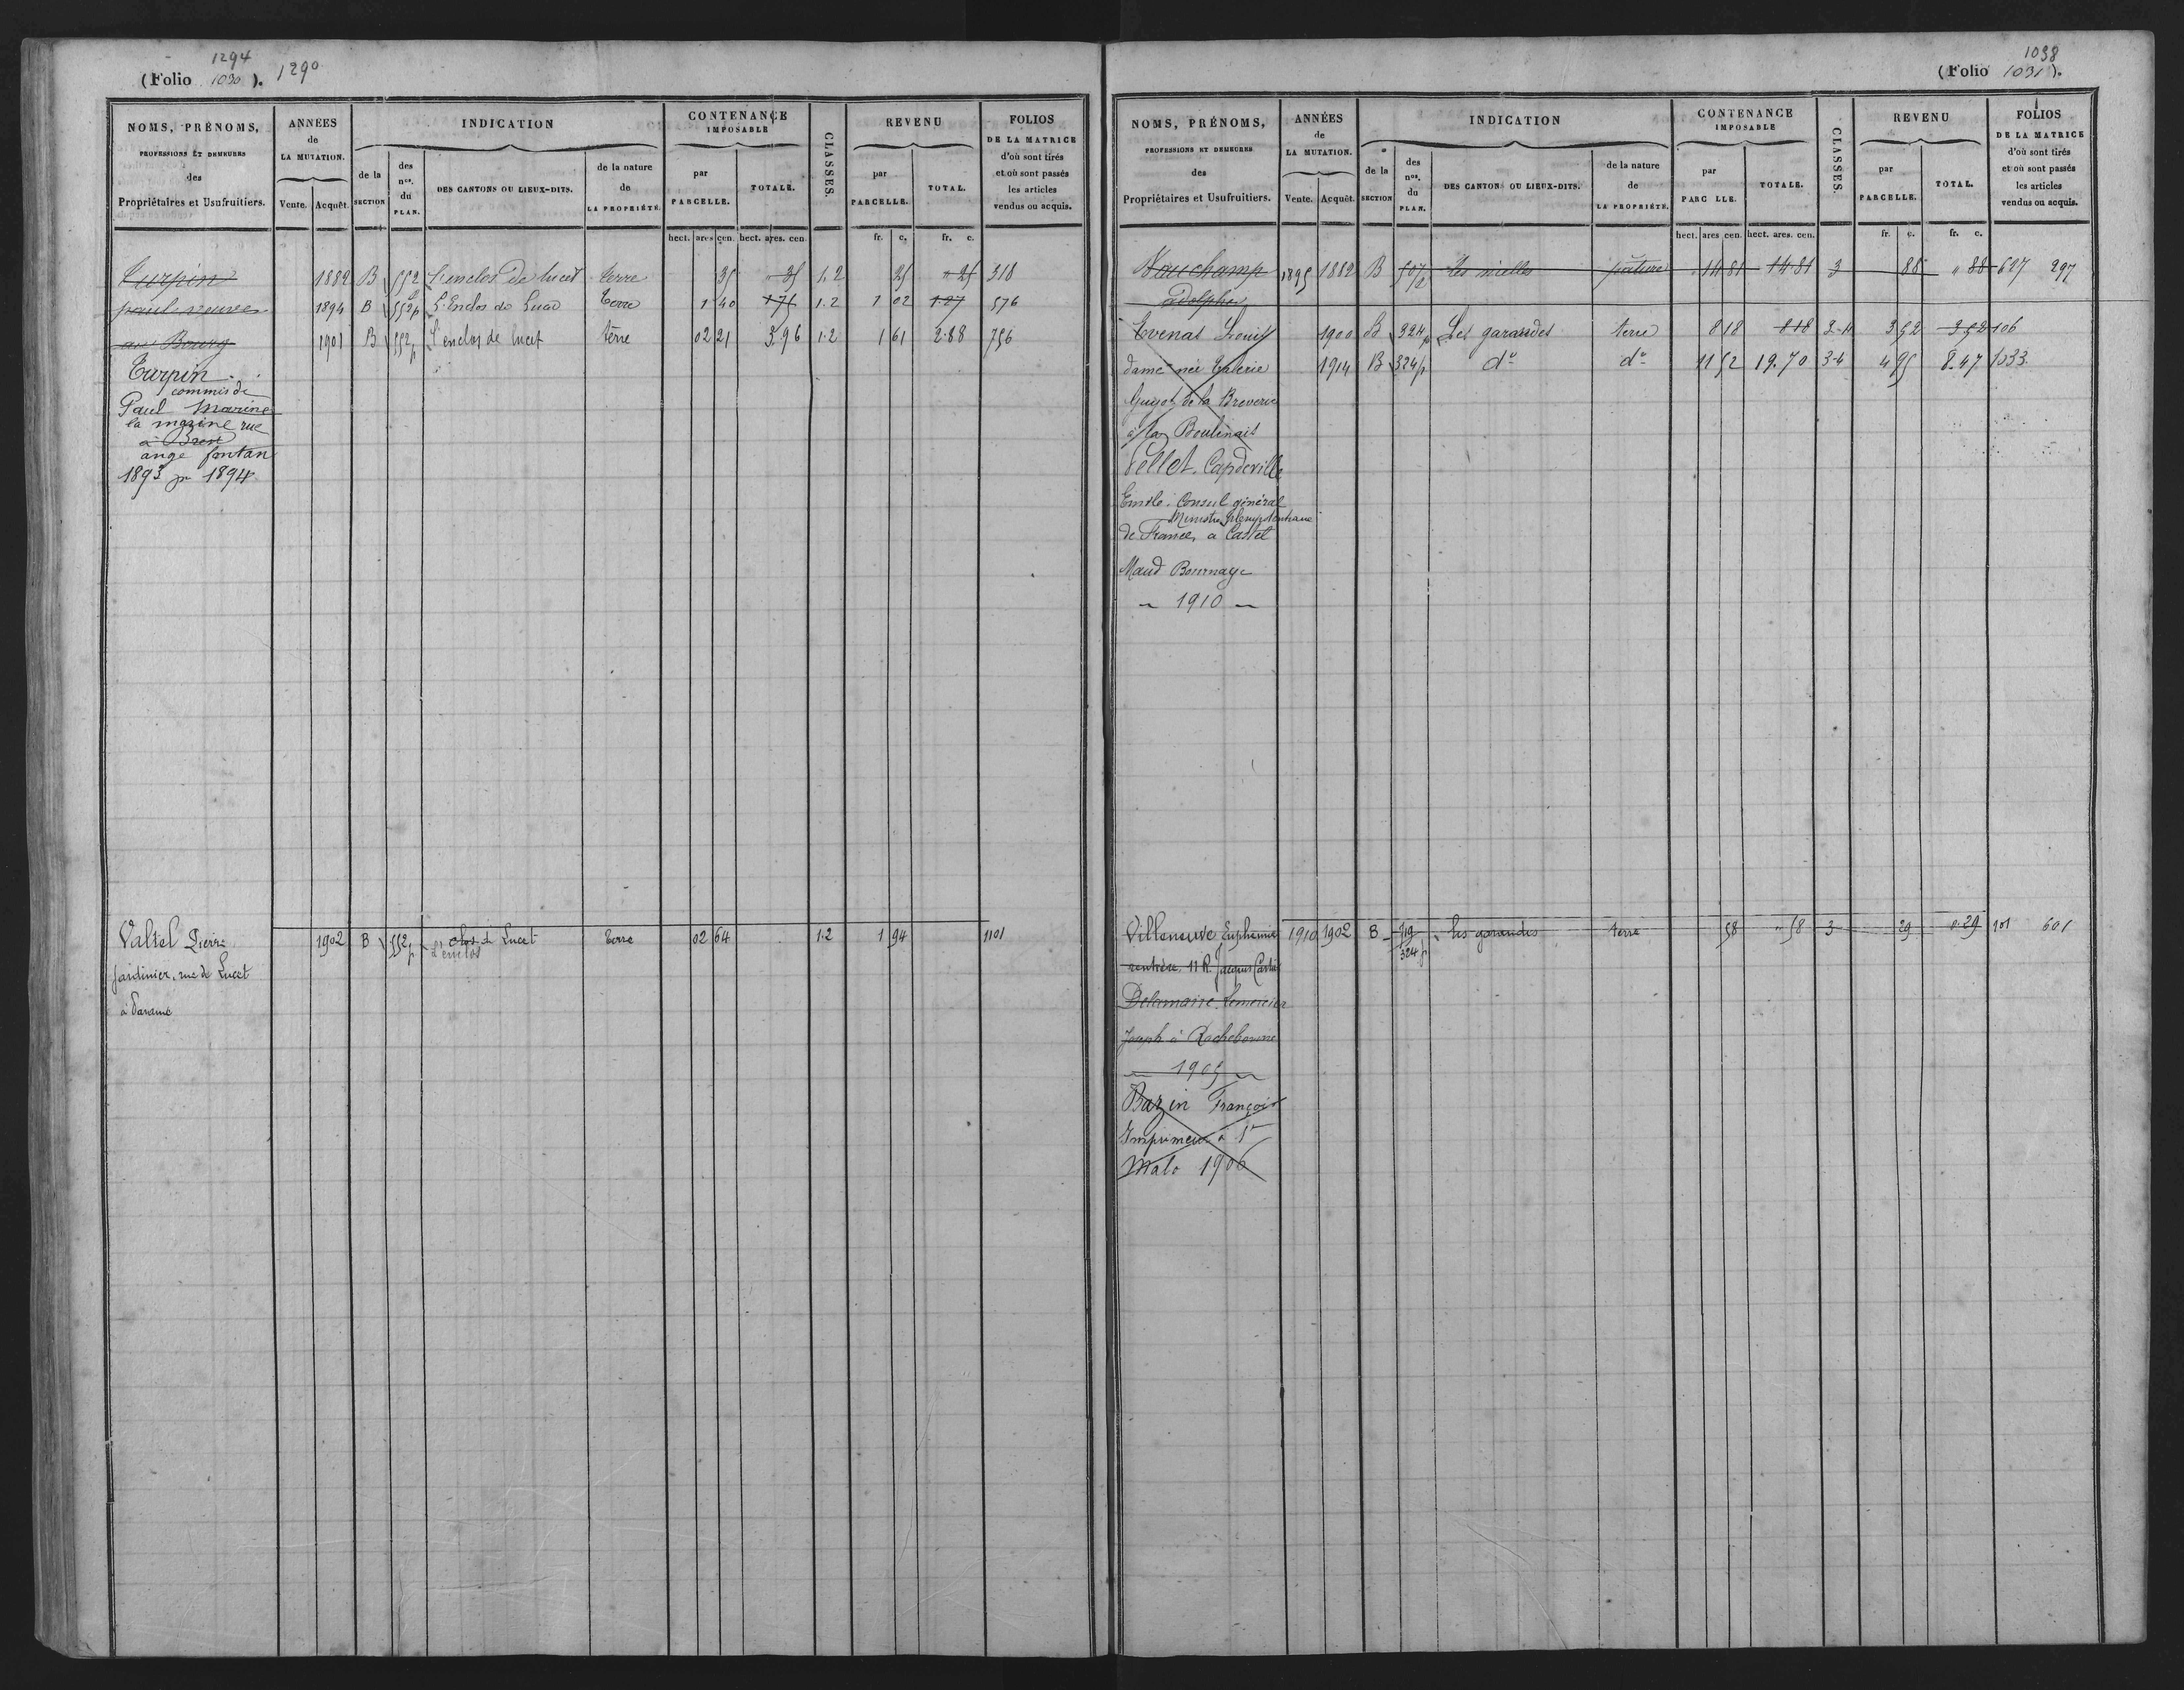 1294
(Folio 1030). 1290
NOMS, PRÉNOMS,
PROFESSIONS ET DEMEURES
des
Propriétaires et Usufruitiers.
ANNÉES
de
LA MUTATION.
Vente. Acquêt.
INDICATION
de la
SECTION
des
nos.
du
PLAN.
DES CANTONS OU LIEUX-DITS.
de la nature
de
LA PROPRIÉTÉ.
CONTENANCE
IMPOSABLE
par
PARCELLE.
TOTALE.
CLASSES.
REVENU
par
PARCELLE.
TOTAL.
FOLIOS
DE LA MATRICE
d'où sont tirés
et où sont passés
les articles
vendus ou acquis.
hect. ares cen. hect. ares. cen. fr. c. fr. c.
Turpin 1882 B 552 L'enclos de lucet terre 35 " 35 1.2 25 " 25 318
paul neuves 1894 B 552p L'Enclos de Lucet terre 1 40 1.75 1.2 1 02 1.27 576
au Bourg 1901 B 552p L'enclos de lucet terre 02 21 3.96 1.2 1 61 2.88 756
Turpin
commis de
Paul Marine
la marine rue
à Brest
ange fontan
1893 pr 1894
Valtel Pierre 1902 B 552p clos de Lucet terre 02 64 1.2 1 94 1101
L'enclos
Jardinier, rue de Lucet
à Paramé
1038
(Folio 1031).
NOMS, PRÉNOMS,
PROFESSIONS ET DEMEURES
des
Propriétaires et Usufruitiers.
ANNÉES
de
LA MUTATION.
Vente. Acquêt.
INDICATION
de la
SECTION
des
nos.
du
PLAN.
DES CANTONS OU LIEUX-DITS.
de la nature
de
LA PROPRIÉTÉ.
CONTENANCE
IMPOSABLE
par
PARC LLE.
TOTALE.
CLASSES.
REVENU
par
PARCELLE.
TOTAL.
FOLIOS
DE LA MATRICE
d'où sont tirés
et où sont passés
les articles
vendus ou acquis.
hect. ares cen. hect. ares. cen. fr. c. fr. c.
Vauchamp 1895 1882 B 507p Les nielles pâture 14 81 14 81 3 88 " 88 627 297
adolphe
Evenat Louis 1900 B 324p Les garandes terre 8 18 8 18 3-4 3 52 3 52 106
dame née Valerie 1914 B 324p do do 11 52 19.70 3-4 4 95 8.47 1033
Guyot de la Breverie
à la Boulinais
Vellet. Capdeville
Emile. Consul général
Ministre Plénipotentiaire
de France, à Castel
Maud Bournaye
1910
Villeneuve Euphémie 1910 1902 B 719 Les garandes terre 58 " 58 3 29 " 29 101 601
324p
rentière 11 R. Jacques Cartier
Delamaire Lemercier
Joseph à Rochebonne
1905
Bazin François
Imprimeur à St
Malo 1906